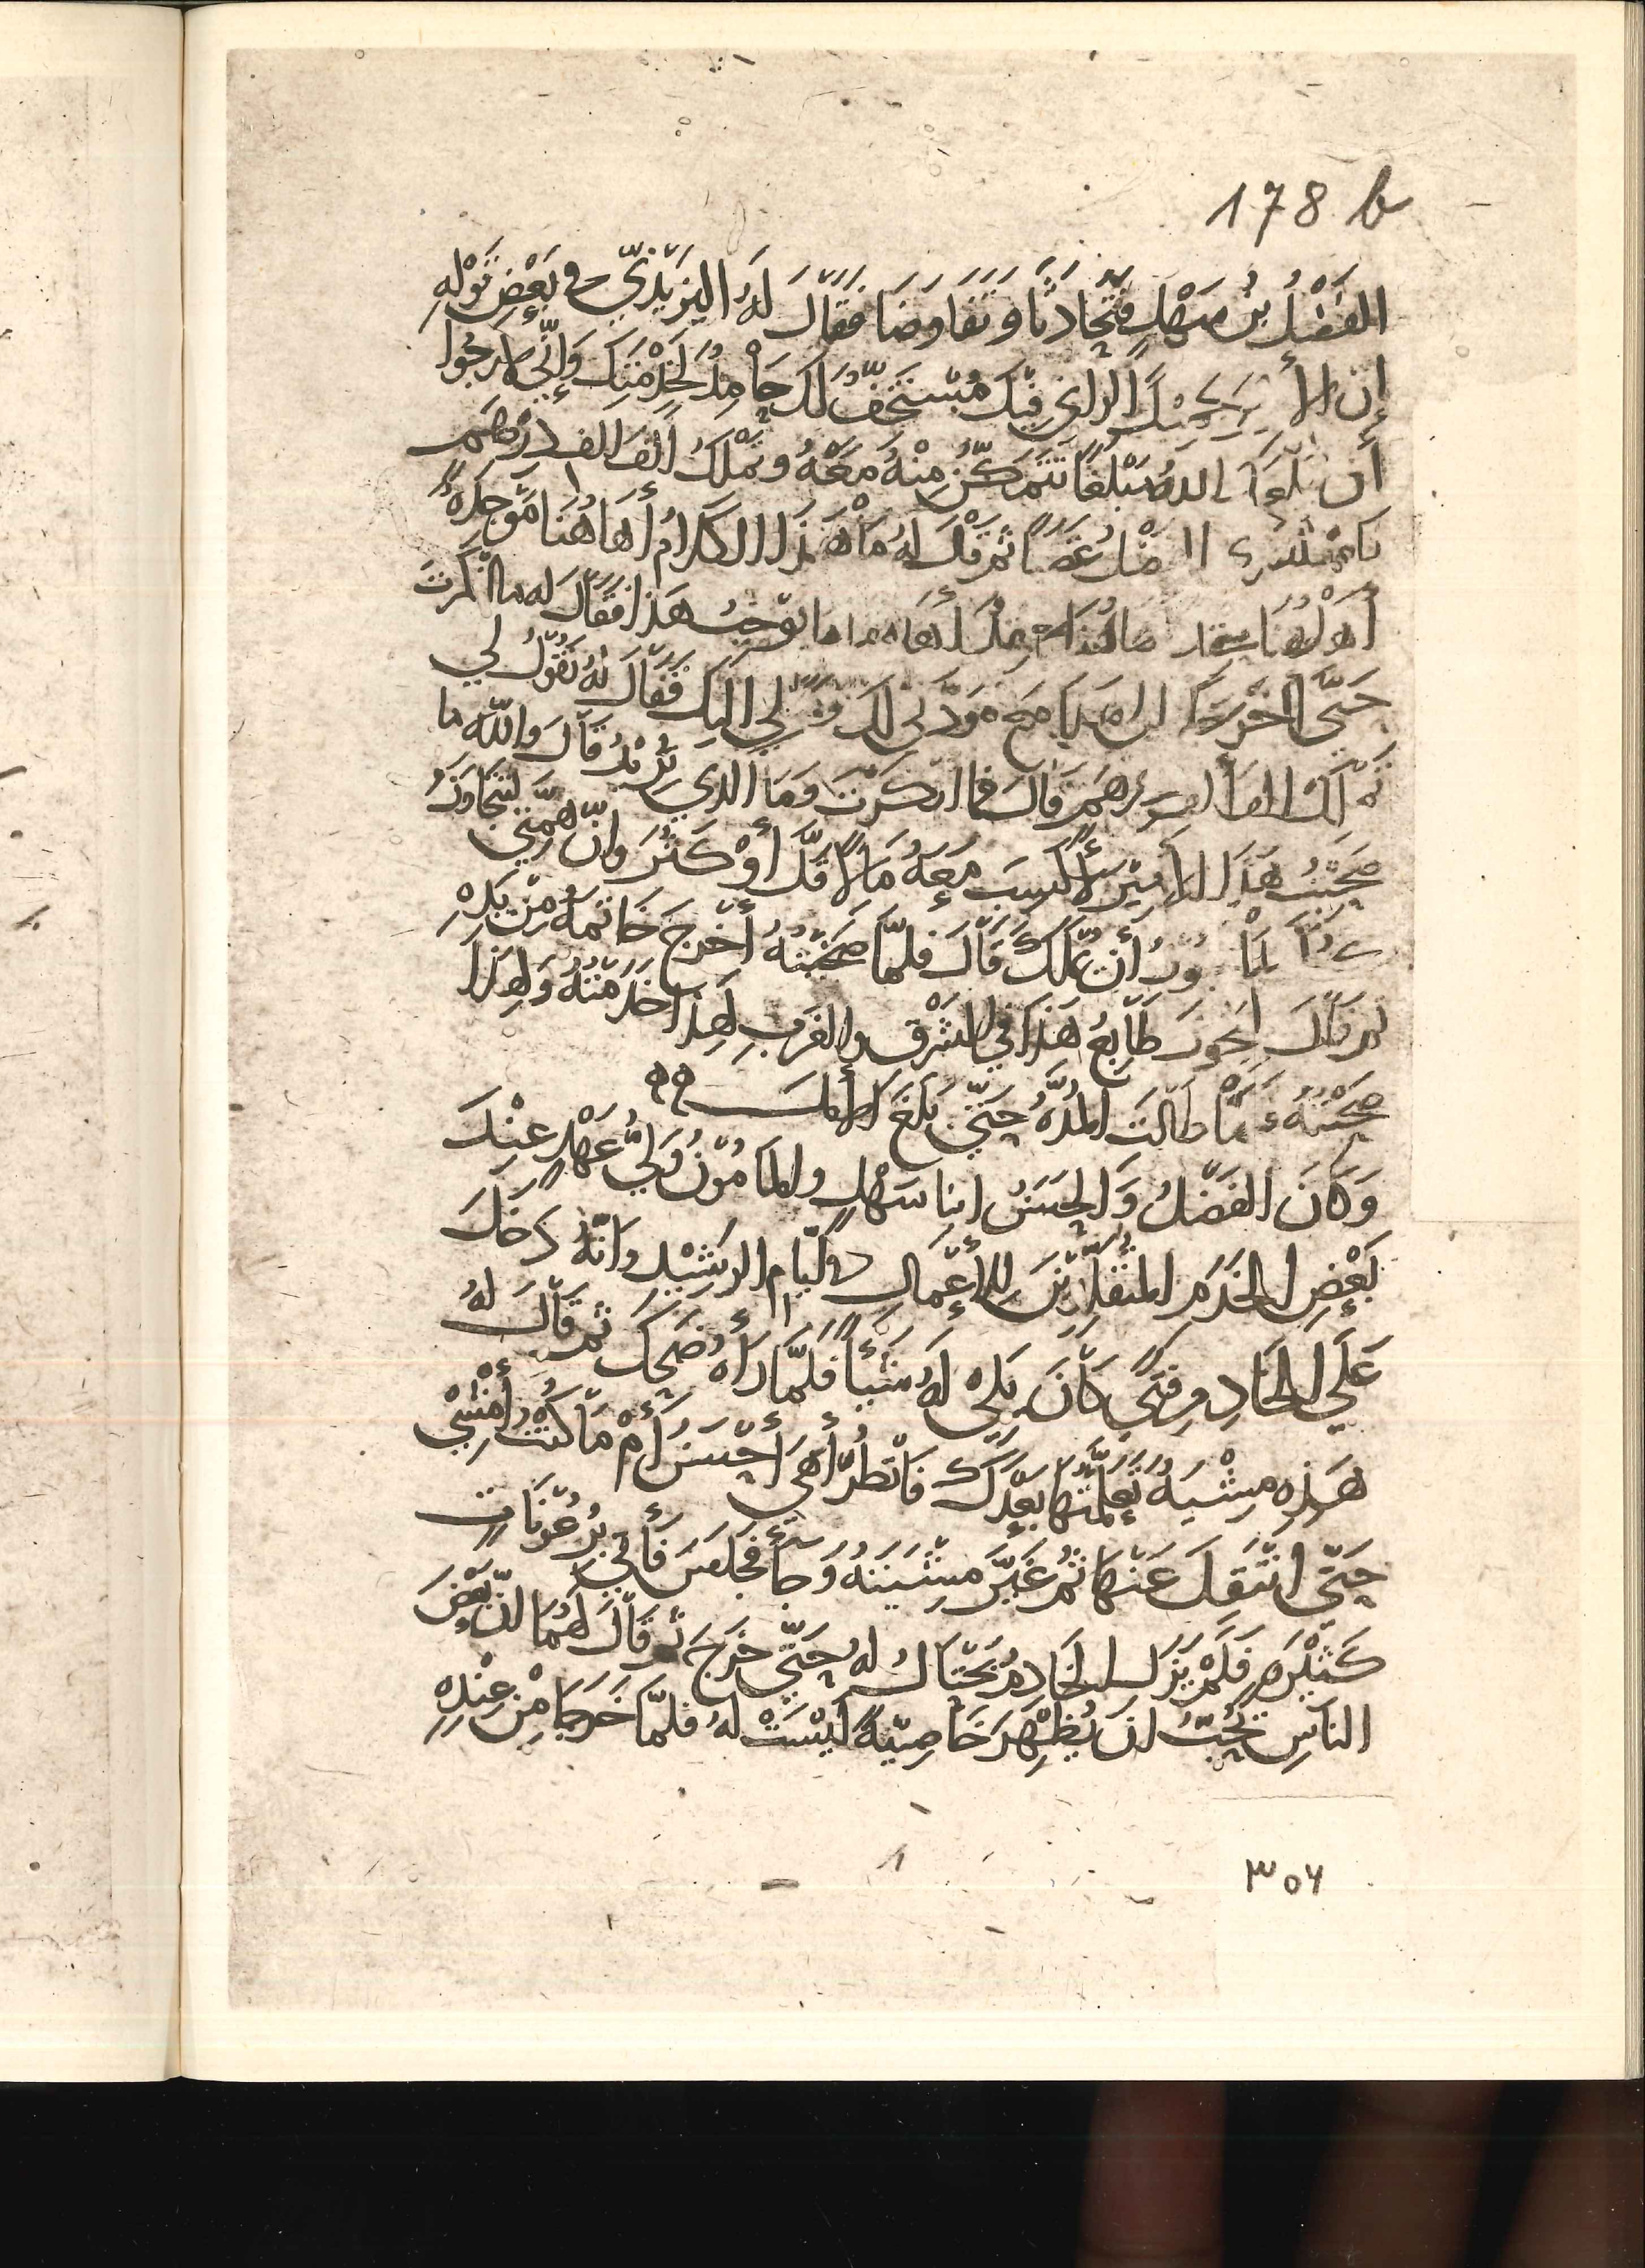 178 b
الفَضْلُ بنُ سَهْلٍ فَتَحَادَثَا وَتَفَاوَضَا فَقَالَ لَهُ اليَزِيْدِيّ في بَعْضِ قَوْلِهِ
إن الأ الرأي فِيْكَ مُسْتَخِفٌّ لَكَ حَامِدٌ لخِدْمَتِكَ وَإنّي لأرجُوا
أن مَبْلَغًا تَتَمَكَّنُ مِنْهُ مَعَهُ وتَمْلكُ ألفَ الف درْهَم
غَضَبًا ثم قَالَ لهُ مَا هَذَا الكَلامُ أهَاهُنَا مَوْجِدَةٌ
أهَاهُنَا هَاهُنَا مَا يُوْجبُ هَذا فَقَالَ له ما انْكَرتَ
حَتَّى مَوَدَّتي لكَ اليكَ فَقَالَ لهُ تَقُوْلُ لي
درْهَم قَالَ فما انكَرْتَ وَمَا الذي تُريْدُ قَالَ وَاللهِ ما
صَحِبْتُ هَذَا الأمِيْرَ لأكسِبَ مَعَهُ مَالاً قَلَّ أوْ كَثُرَ وَإنّ هِمَّتي لتتجَاوَزُ
أنْ تمْلكَ قَالَ فلمَّا صَحِبْتَهُ أخْرجَ خَاتمَهُ مِنْ يَدِهِ
ثم قَالَ لِيَجُوزَ طَابعُ هَذَا في الشَرْق والغَرب لِهَذا خَدَمْتُهُ وَلِهَذا
صَحِبْتُهُ فَمَا طَالَتِ المُدَّةُ حَتّى بَلغَ مَا أمَّلَ
وَكَانَ الفَضْلُ وَالحَسَنُ ابنا سَهْلٍ والمَامُوْنُ وَليُّ عَهْدٍ عِنْدَ
بَعْضِ الخَدَمِ المُتَقَلِّدِيْنَ لِلأعْمَالِ في أيَّام الرشيْدِ وَانّهُ دَخَلَ
عَلَى الخَادِمِ فَتًى كَانَ يَلِي لهُ شَيْئًا فَلمَّا رَاهُ ضَحِكَ ثم قَالَ لهُ
هَذِهِ مِشْيَةٌ تَعَلَّمْتُهَا بَعْدَكَ فَانْظُر أهيَ أحْسَنُ أمْ مَا كُنْتُ أمْشِي
حَتّى انتَقَلَ عَنْهَا ثم غَيَّرَ مِشْيَتَهُ وَجَاءَ فجَلَسَ فَأتي برُعُوْنَاتٍ
كَثيْرَةٍ فَلَمْ يَزَل الخَادِمُ يَحْتَالُ لهُ حَتّى خَرَجَ ثم قَالَ لهُمَا إنّ بَعْضَ
الناسِ يُحِبُّ ان يُظْهِرَ خَاصِيّةً لَيْسَتْ لهُ فلمَّا خَرَجَا مِنْ عِنْدِهِ
٣٥٦